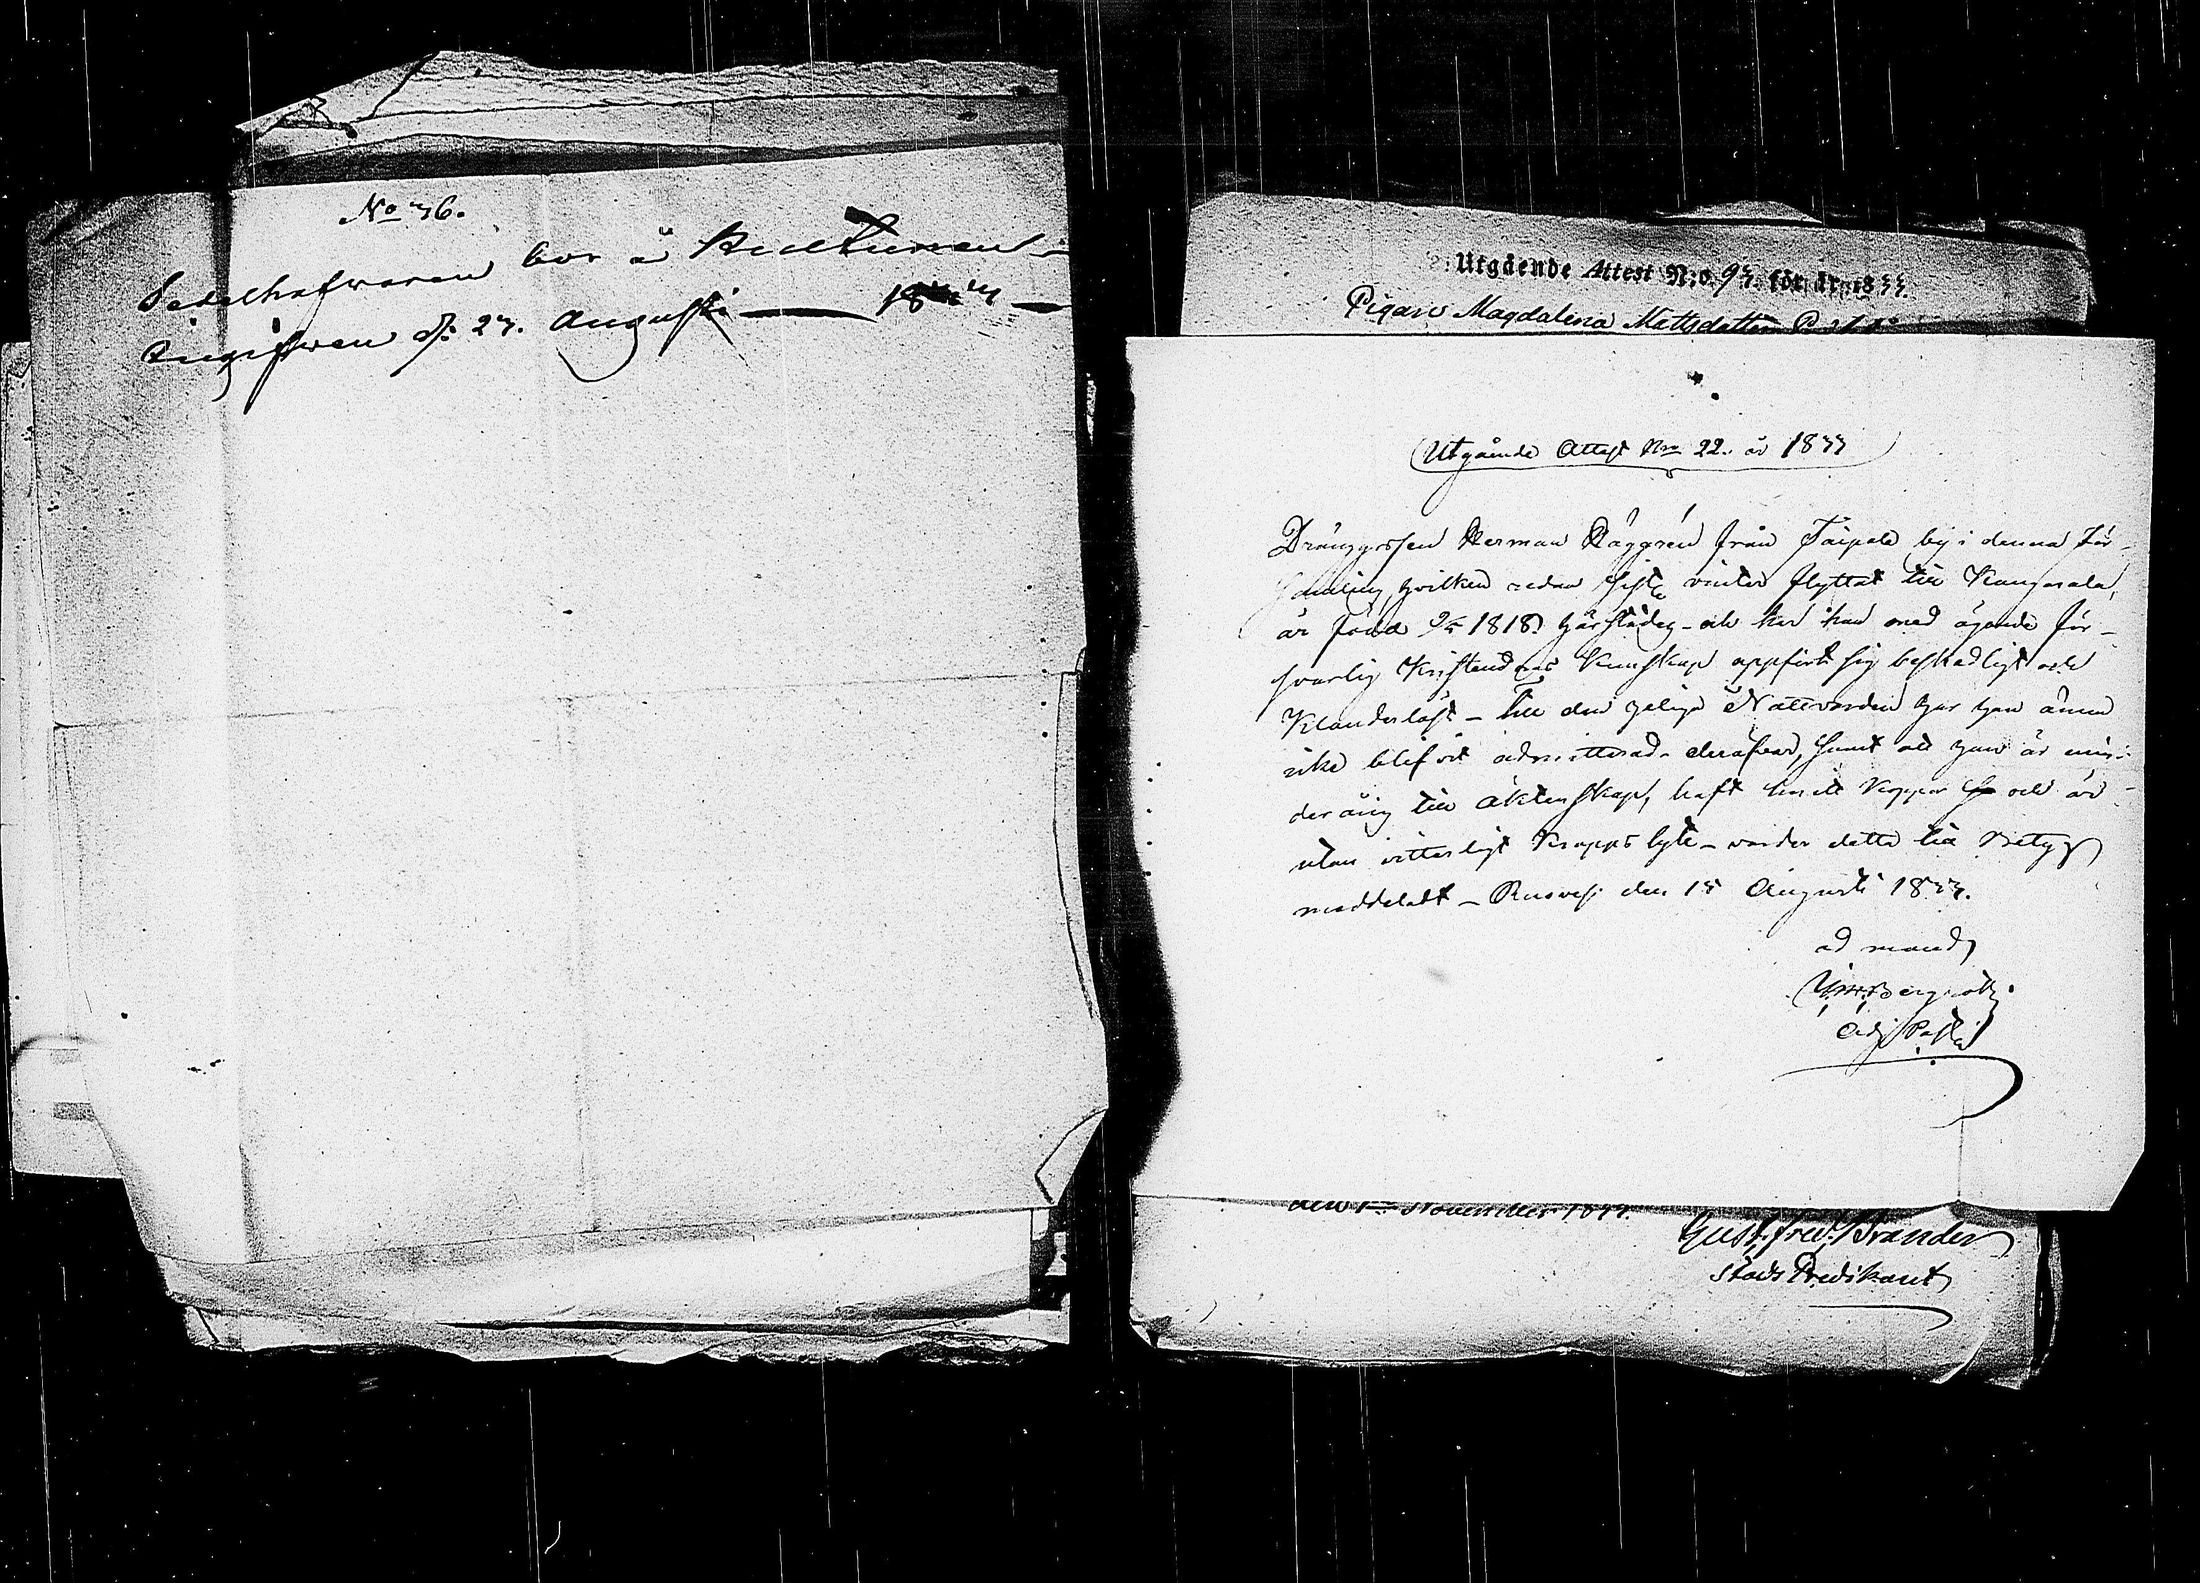 No 36.
Sedelhafvaren bor å
Angifven d. 23. Augusti 1833
Utgående Attest N:o 93. för år 1833.
Pigan Magdalena Mattsdotter
Utgående Attest Nro 22. år 1833
Dränggossen Herman Häggrén från Taipale by i denna För-
samling, hvilken redan sista vinter flyttat till Kangasala,
är född 1818 härstädes - och har han med ägande för-
svarlig Kristendoms Kunskap uppfört sig beskedligt och
Klanderlöst - Till den heliga Nattvarden har han ännu
icke blifvit admitterad. derafvar, samt att han är min-
derårig till äktenskap, haft koppor och är
utan vitterligt Kroppslyte - varder detta till Betyg
meddeladt - Ruovesi den 15 Augusti 1833.
ad mand
Bergroth
Adj Past
den 1 November 1833.
Gust. Fred. Brander
Stads Predikant